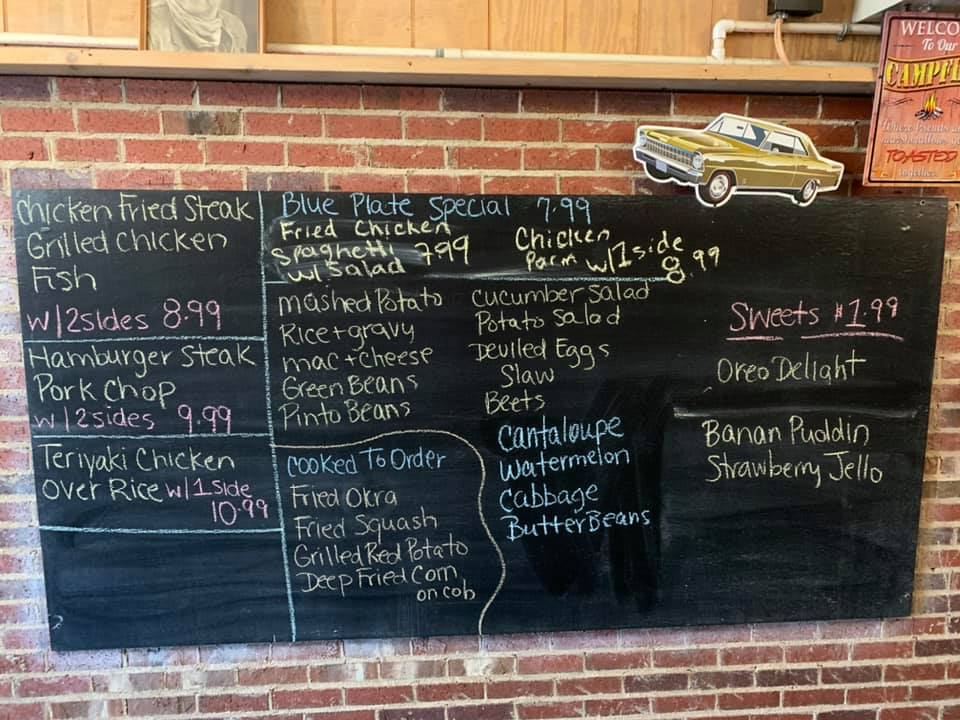 Chicken Fried Steak
Grilled Chicken
Fish
w/2sides 8.99
Hamburger Steak
Pork Chop
w/2sides 9.99
Teriyaki Chicken
Over Rice w/1side
10.99
Blue Plate Special 7.99
Fried Chicken
Spaghetti 7.99
w/Salad
Chicken
Parm w/1side
8.99
Mashed Potato
Rice+gravy
Mac+cheese
Green Beans
Pinto Beans
Cucumber Salad
Potato Salad
Deviled Eggs
Slaw
Beets
Cantaloupe
Watermelon
Cabbage
Butter Beans
Cooked To Order
Fried Okra
Fried Squash
Grilled Red Potato
Deep Fried Corn
on cob
Sweets $1.99
Oreo Delight
Banan Puddin
Strawberry Jello
WELCO
To Our
CAMPF
TOASTED
together